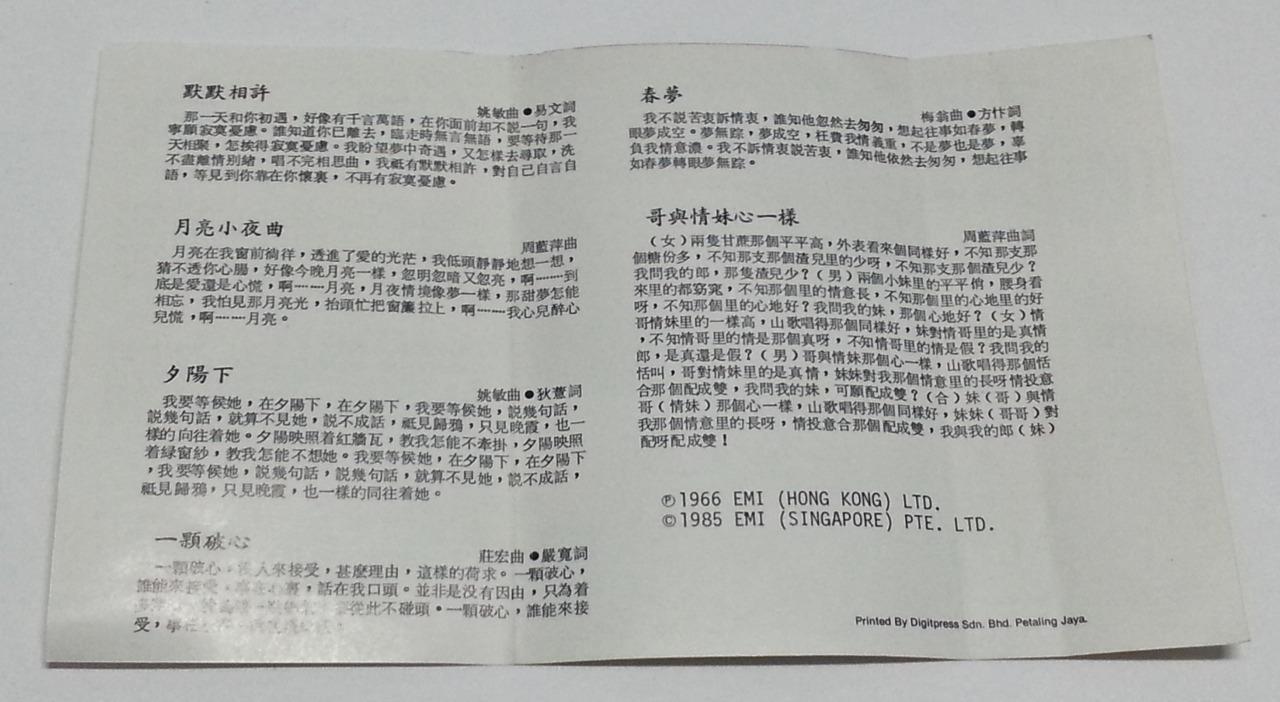 默默相許
姚敏曲●易文詞
那一天和你初遇，好像有千言萬語，在你面前却不説一句，我
寧願寂寞憂慮。誰知道你已離去，臨走時無言無語，要等待那一
天相聚，怎挨得寂寞憂慮。我盼望夢中奇遇，又怎樣去尋取，洗
不盡離情別緒，唱不完相思曲，我祗有默默相許，對自己自言自
語，等見到你靠在你懷裏，不再有寂寞憂慮。
月亮小夜曲
周藍萍曲
月亮在我窗前徜徉，透進了愛的光茫，我低頭靜靜地想一想，
猜不透你心腸，好像今晚月亮一樣，忽明忽暗又忽亮，啊……到
底是愛還是心慌，啊……月亮，月夜情境像夢一樣，那甜夢怎能
相忘，我怕見那月亮光，抬頭忙把窗簾拉上，啊……我心兒醉心
兒慌，啊……月亮。
夕陽下
姚敏曲●狄薏詞
我要等候她，在夕陽下，在夕陽下，我要等候她，説幾句話，
説幾句話，就算不見她，説不成話，祗見歸鴉，只見晚霞，也一
樣的向往着她。夕陽映照着紅牆瓦，教我怎能不牽掛，夕陽映照
着緑窗紗，教我怎能不想她。我要等候她，在夕陽下，在夕陽下
，我要等候她，説幾句話，説幾句話，就算不見她，説不成話，
祗見歸鴉，只見晚霞，也一樣的同往着她。
一顆破心
莊宏曲●嚴寬詞
一顆破心，沒人來接受，甚麽理由，這樣的荷求。一顆破心，
誰能來接受，事在心裏，話在我口頭。並非是没有因由，只為着
從此不碰頭。一顆破心，誰能來接
受，
春夢
梅翁曲●方忭詞
我不説苦衷訴情衷，誰知他忽然去匆匆，想起往事如春夢，轉
眼夢成空。夢無踪，夢成空，枉費我情義重，不是夢也是夢，辜
負我情意濃。我不訴情衷説苦衷，誰知他依然去匆匆，想起往事
如春夢轉眼夢無踪。
哥與情妹心一樣
周藍萍曲詞
（女）兩隻甘蔗那個平平高，外表看來個同樣好，不知那支那
個糖份多，不知那支那個渣兒里的少呀，不知那支那個渣兒少？
我問我的郎，那隻渣兒少？（男）兩個小妹里的平平俏，腰身看
來里的都窈窕，不知那個里的情意長，不知那個里的心地里的好
呀，不知那個里的心地好？我問我的妹，那個心地好？（女）情
哥情妹里的一樣高，山歌唱得那個同樣好，妹對情哥里的是真情
，不知情哥里的情是那個真呀，不知情哥里的情是假？我問我的
郎，是真還是假？（男）哥與情妹那個心一樣，山歌唱得那個恬
恬叫，哥對情妹里的是真情，妹妹對我那個情意里的長呀情投意
合那個配成雙，我問我的妹，可願配成雙？（合）妹（哥）與情
哥（情妹）那個心一樣，山歌唱得那個同樣好，妹妹（哥哥）對
我那個情意里的長呀，情投意合那個配成雙，我與我的郎（妹）
配呀配成雙！
℗1966 EMI (HONG KONG) LTD.
©1985 EMI (SINGAPORE) PTE. LTD.
Printed By Digitpress Sdn. Bhd. Petaling Jaya.